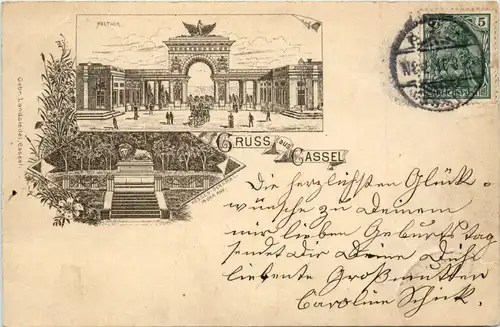 AUETHOR.
5
Gebr. Landsiedel, Cassel.
GRUSS aus CASSEL
IN DER AUE.
Die herzlichsten Glück-
wünsche zu Deinem
mir lieben Geburtstag
sendet Dir Deine Dich
liebende Großmutter
Caroline Schick.